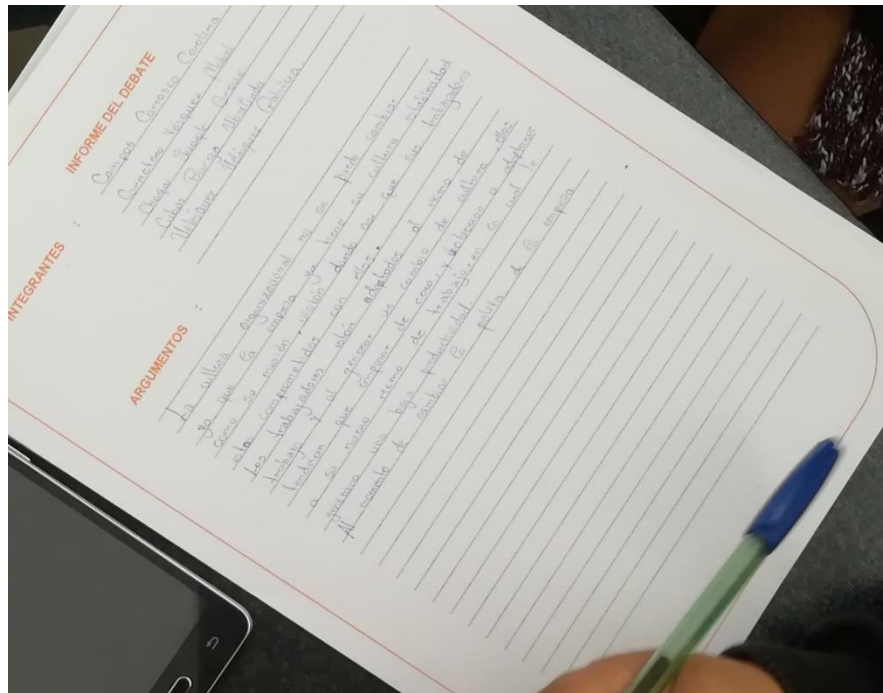 INFORME DEL DEBATE
INTEGRANTES :
Campos Carrasco Carolina
Vásquez Mabel
Choque
Cubas Burga
Velásquez Velásquez Patricia
ARGUMENTOS :
La cultura organizacional no se puede cambiar
ya que la empresa ya tiene su cultura establecidad
como su misión, visión donde que sus trabajadores
comprometidos con ellos.
Los trabajadores están adaptados al retmo de
trabajo y al generar un cambio de cultura ellos
tendrian que empesar de cero y volverse a adaptarse
a su nuevo retmo de trabajo, en cual le
generara una baja productividad.
Al momento de cambiar la de la empresa